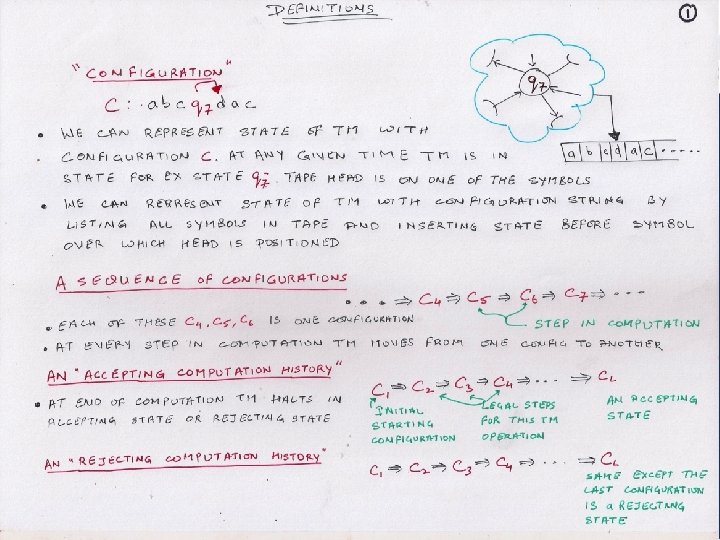 DEFINITIONS
1
"CONFIGURATION"
C : abcq7dac
q7
a b c d a c .....
• WE CAN REPRESENT STATE OF TM WITH
CONFIGURATION C. AT ANY GIVEN TIME TM IS IN
STATE FOR EX STATE q7. TAPE HEAD IS ON ONE OF THE SYMBOLS
• WE CAN REPRESENT STATE OF TM WITH CONFIGURATION STRING BY
LISTING ALL SYMBOLS IN TAPE AND INSERTING STATE BEFORE SYMBOL
OVER WHICH HEAD IS POSITIONED
A SEQUENCE OF CONFIGURATIONS
... ⇒ C4 ⇒ C5 ⇒ C6 ⇒ C7 ⇒ ...
• EACH OF THESE C4, C5, C6 IS ONE CONFIGURATION
STEP IN COMPUTATION
• AT EVERY STEP IN COMPUTATION TM MOVES FROM ONE CONFIG TO ANOTHER
AN "ACCEPTING COMPUTATION HISTORY"
C1 ⇒ C2 ⇒ C3 ⇒ C4 ⇒ ... ⇒ CL
• AT END OF COMPUTATION TM HALTS IN
ACCEPTING STATE OR REJECTING STATE
INITIAL
STARTING
CONFIGURATION
LEGAL STEPS
FOR THIS TM
OPERATION
AN ACCEPTING
STATE
AN "REJECTING COMPUTATION HISTORY"
C1 ⇒ C2 ⇒ C3 ⇒ C4 ⇒ ... ⇒ CL
SAME EXCEPT THE
LAST CONFIGURATION
IS a REJECTING
STATE